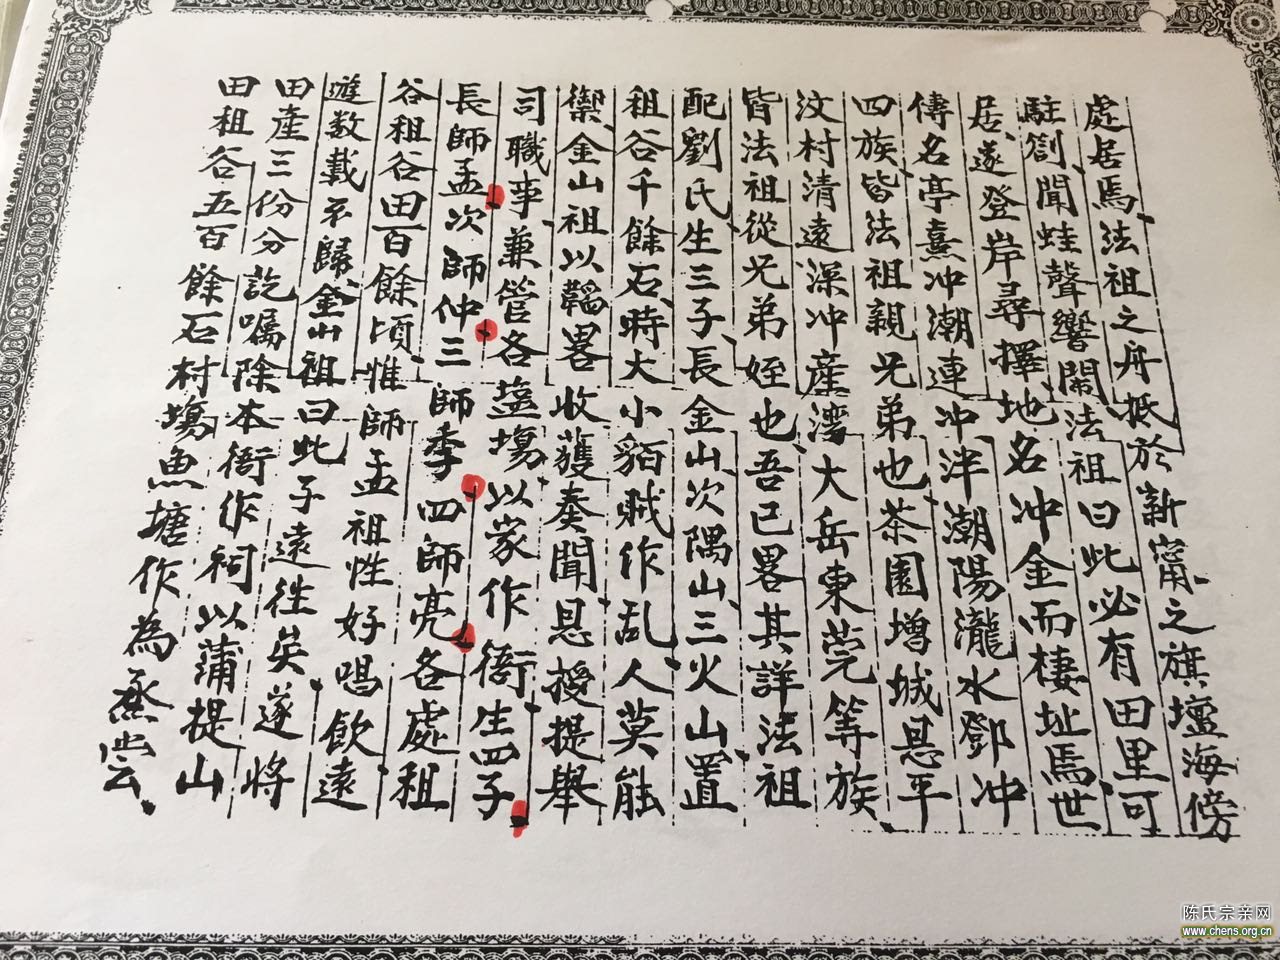 處居焉法祖之舟抵於新甯之旗壇海傍
駐劄聞蛙聲響鬧法祖曰此必有田里可
居遂登岸尋擇地名冲金而棲址焉世
傳名亭熹冲潮連冲泮潮陽瀧水鄧冲
四族皆法祖親兄弟也茶園增城恩平
汶村清遠深冲產灣大岳東莞等族
皆法祖從兄弟姪也吾已畧其詳法祖
配劉氏生三子長金山次隅山三火山置
租谷千餘石時大小貊賊作乱人莫能
禦金山祖以韜畧收蘾奏聞恩授提舉
司職事兼管各塩塲以家作衙生四子
長師孟次師仲三師季四師亮各處租
谷租谷田百餘頃惟師孟祖性好唱飲遠
遊数載不歸金山祖曰此子遠徃矣遂將
田產三份分訖嘱除本衙作祠以蒲提山
田租谷五百餘石村塲魚塘作為烝嘗
陈氏宗亲网
www.chens.org.cn